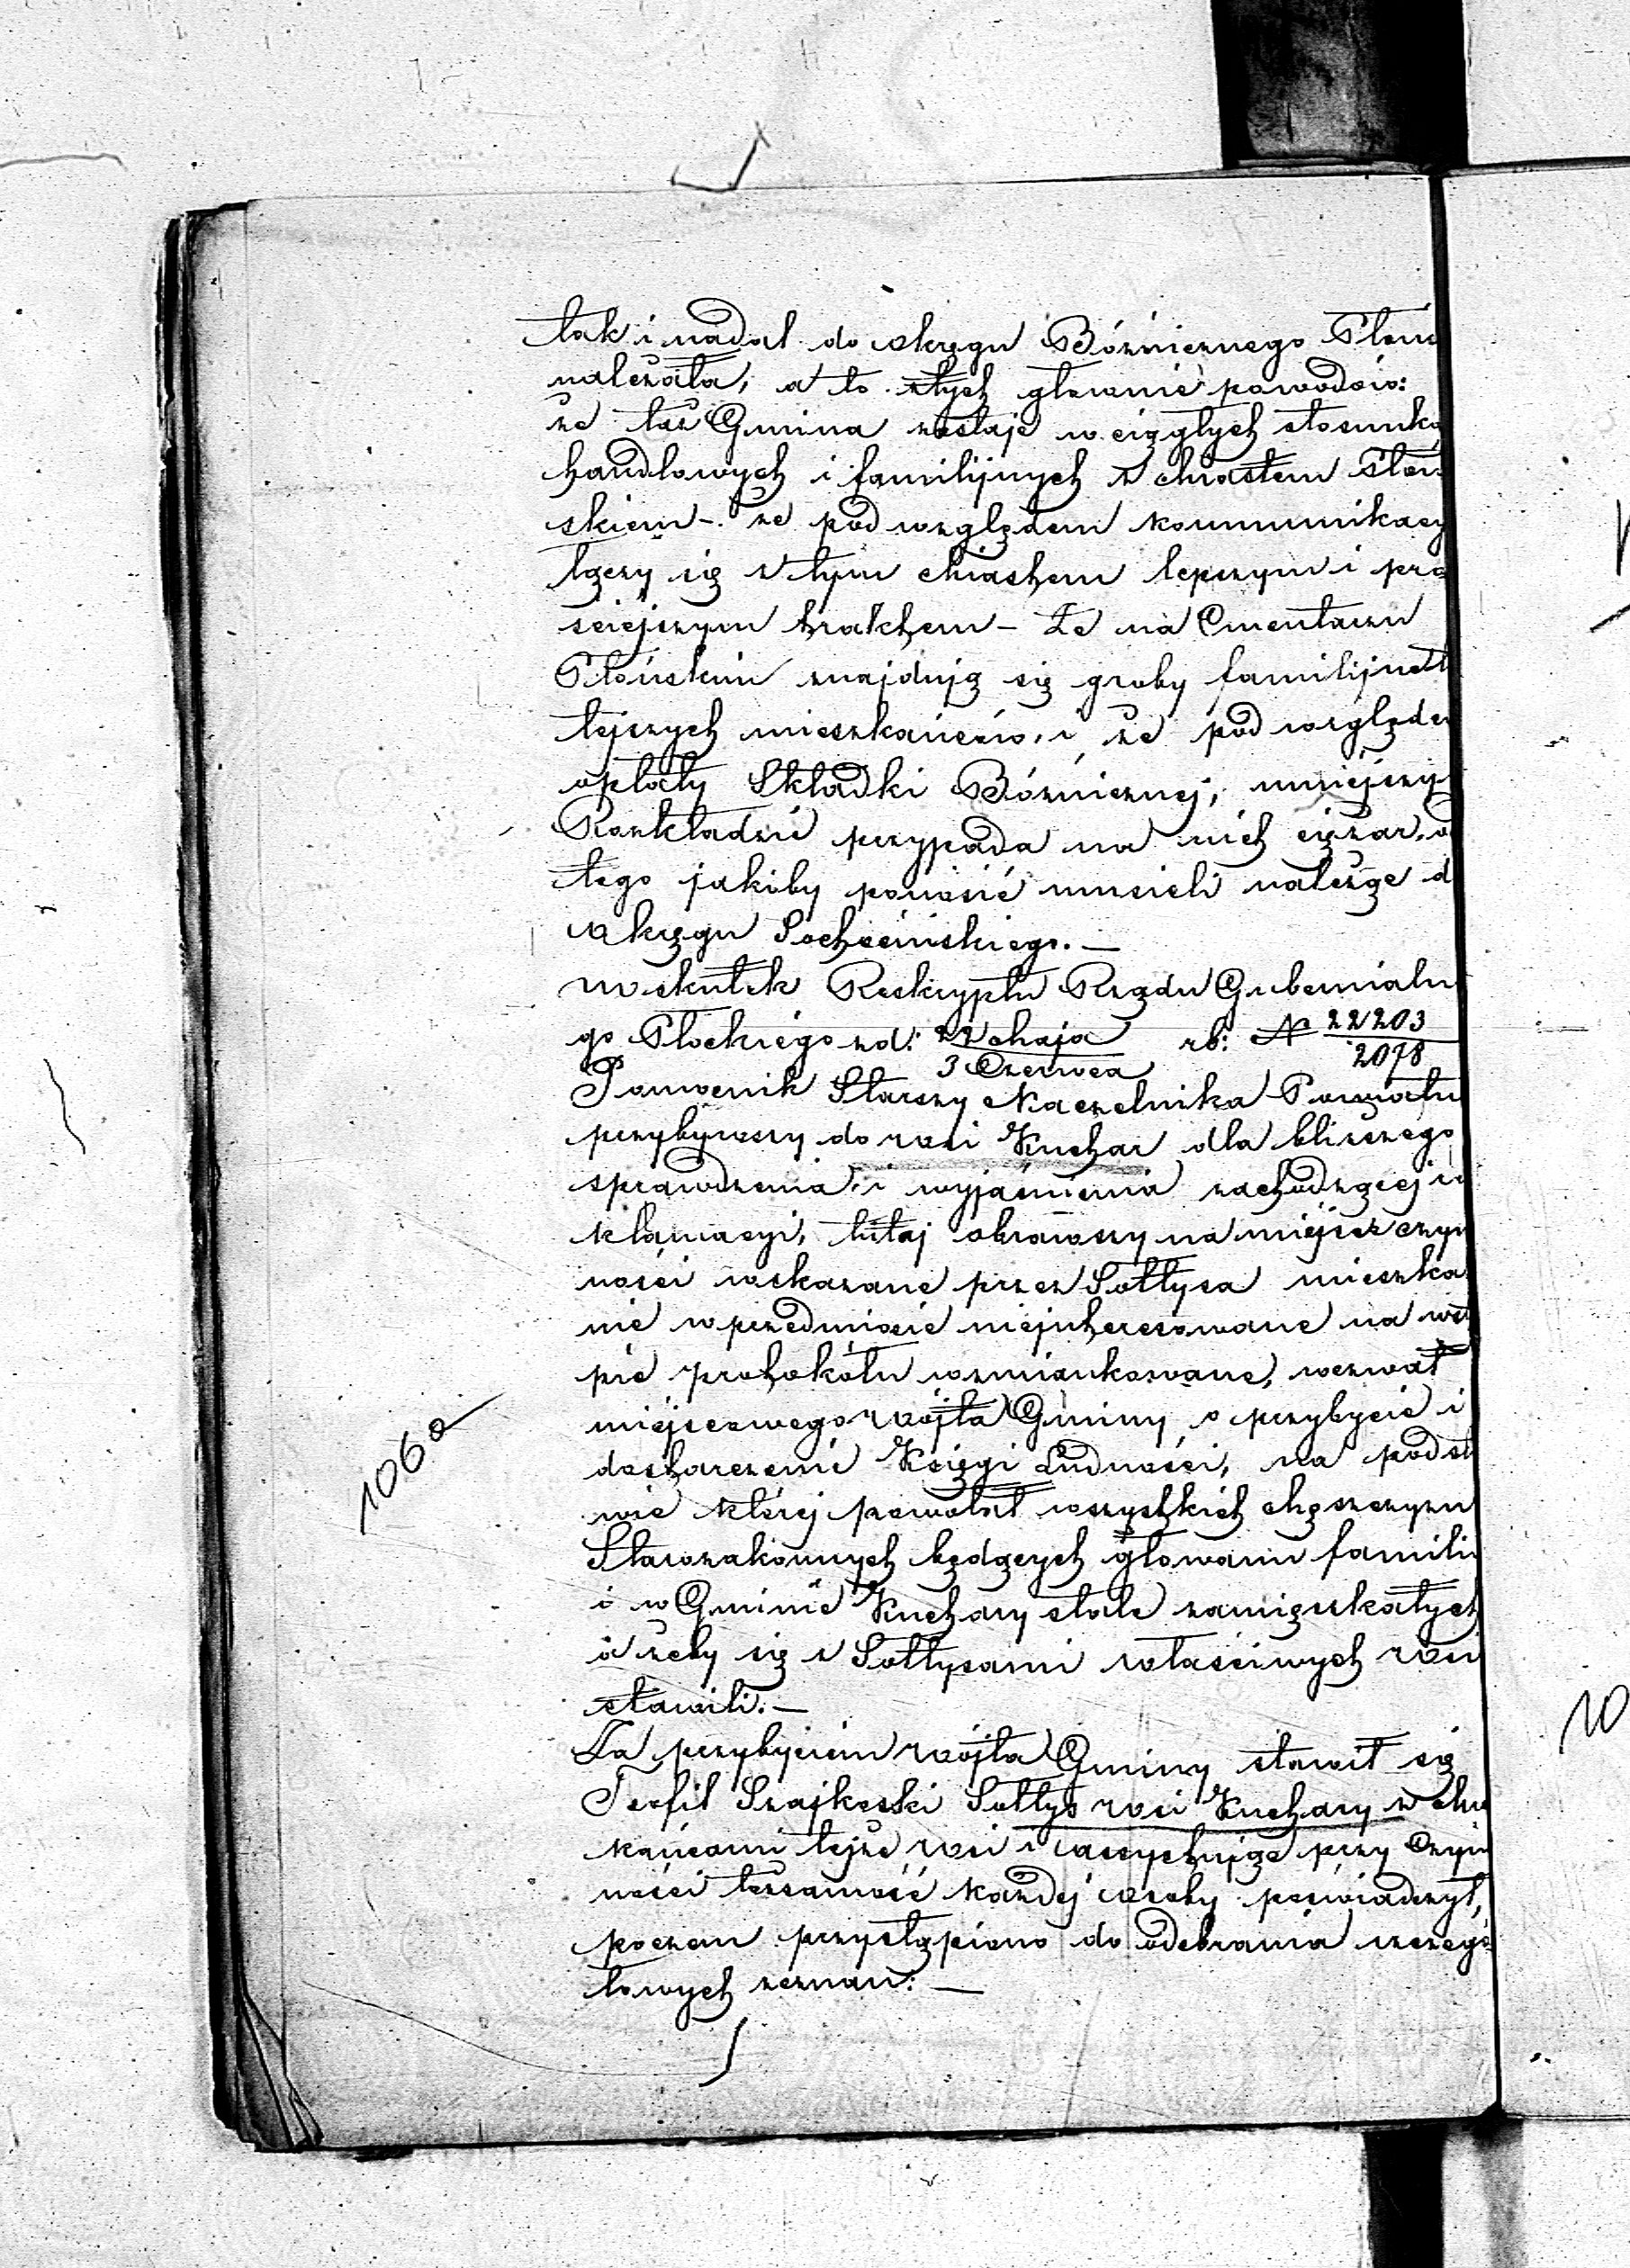 tak i nadal do okręgu Bóżnicznego Płońs
należała, a to z tych głównie powodów:
że taż Gmina zostaje w ciągłych stosunka
handlowych i familijnych z Miastem Płoń-
skiem – że pod względem kommunikacy
łączy się z tym Miastem lepszym i pro
ściejszym traktem – Że na Cmentarzu
Płońskim znajdują się groby familijne t
tejszych mieszkańców, i że pod względem
opłaty Składki Bóżnicznej, mniejszy
Rozkładzie przypada na nich ciężar, o
tego jakiby ponosić musieli należąc d
okręgu Sochocińskiego. –
W skutek Reskryptu Rządu Gubernialne
go Płockiego z d: 22 Maja rb: N 22203
3 Czerwca 2078
Pomocnik Starszy Naczelnika Powiatu
przybywszy do wsi Kuchar dla bliższego
sprawdzenia i wyjaśnienia zachodzącej r
klamacyi, tutaj obrawszy na miejsce czyn
ności wskazane przez Sołtysa mieszka
nie w przedmiocie nieinteresowane na wst
pie protokółu wzmiankowane, wezwał
miejscowego Wójta Gminy o przybycie i
dostarczenie Księgi Ludności, na podsta
wie której powołał wszystkich Mężczyzn
Starozakonnych będących głowami familii
i w Gminie Kuchary stale zamieszkałych
ażeby się z Sołtysami właściwych wsi
stawili. –
Za przybyciem Wójta Gminy stawił się
Teofil Szajkoski Sołtys wsi Kuchary z Mie
kańcami tejże wsi i assystując przy Czyn
ności tożsamość każdej osoby poświadczył,
poczem przystąpiono do odebrania szczegó
łowych zeznań: –
106a
10